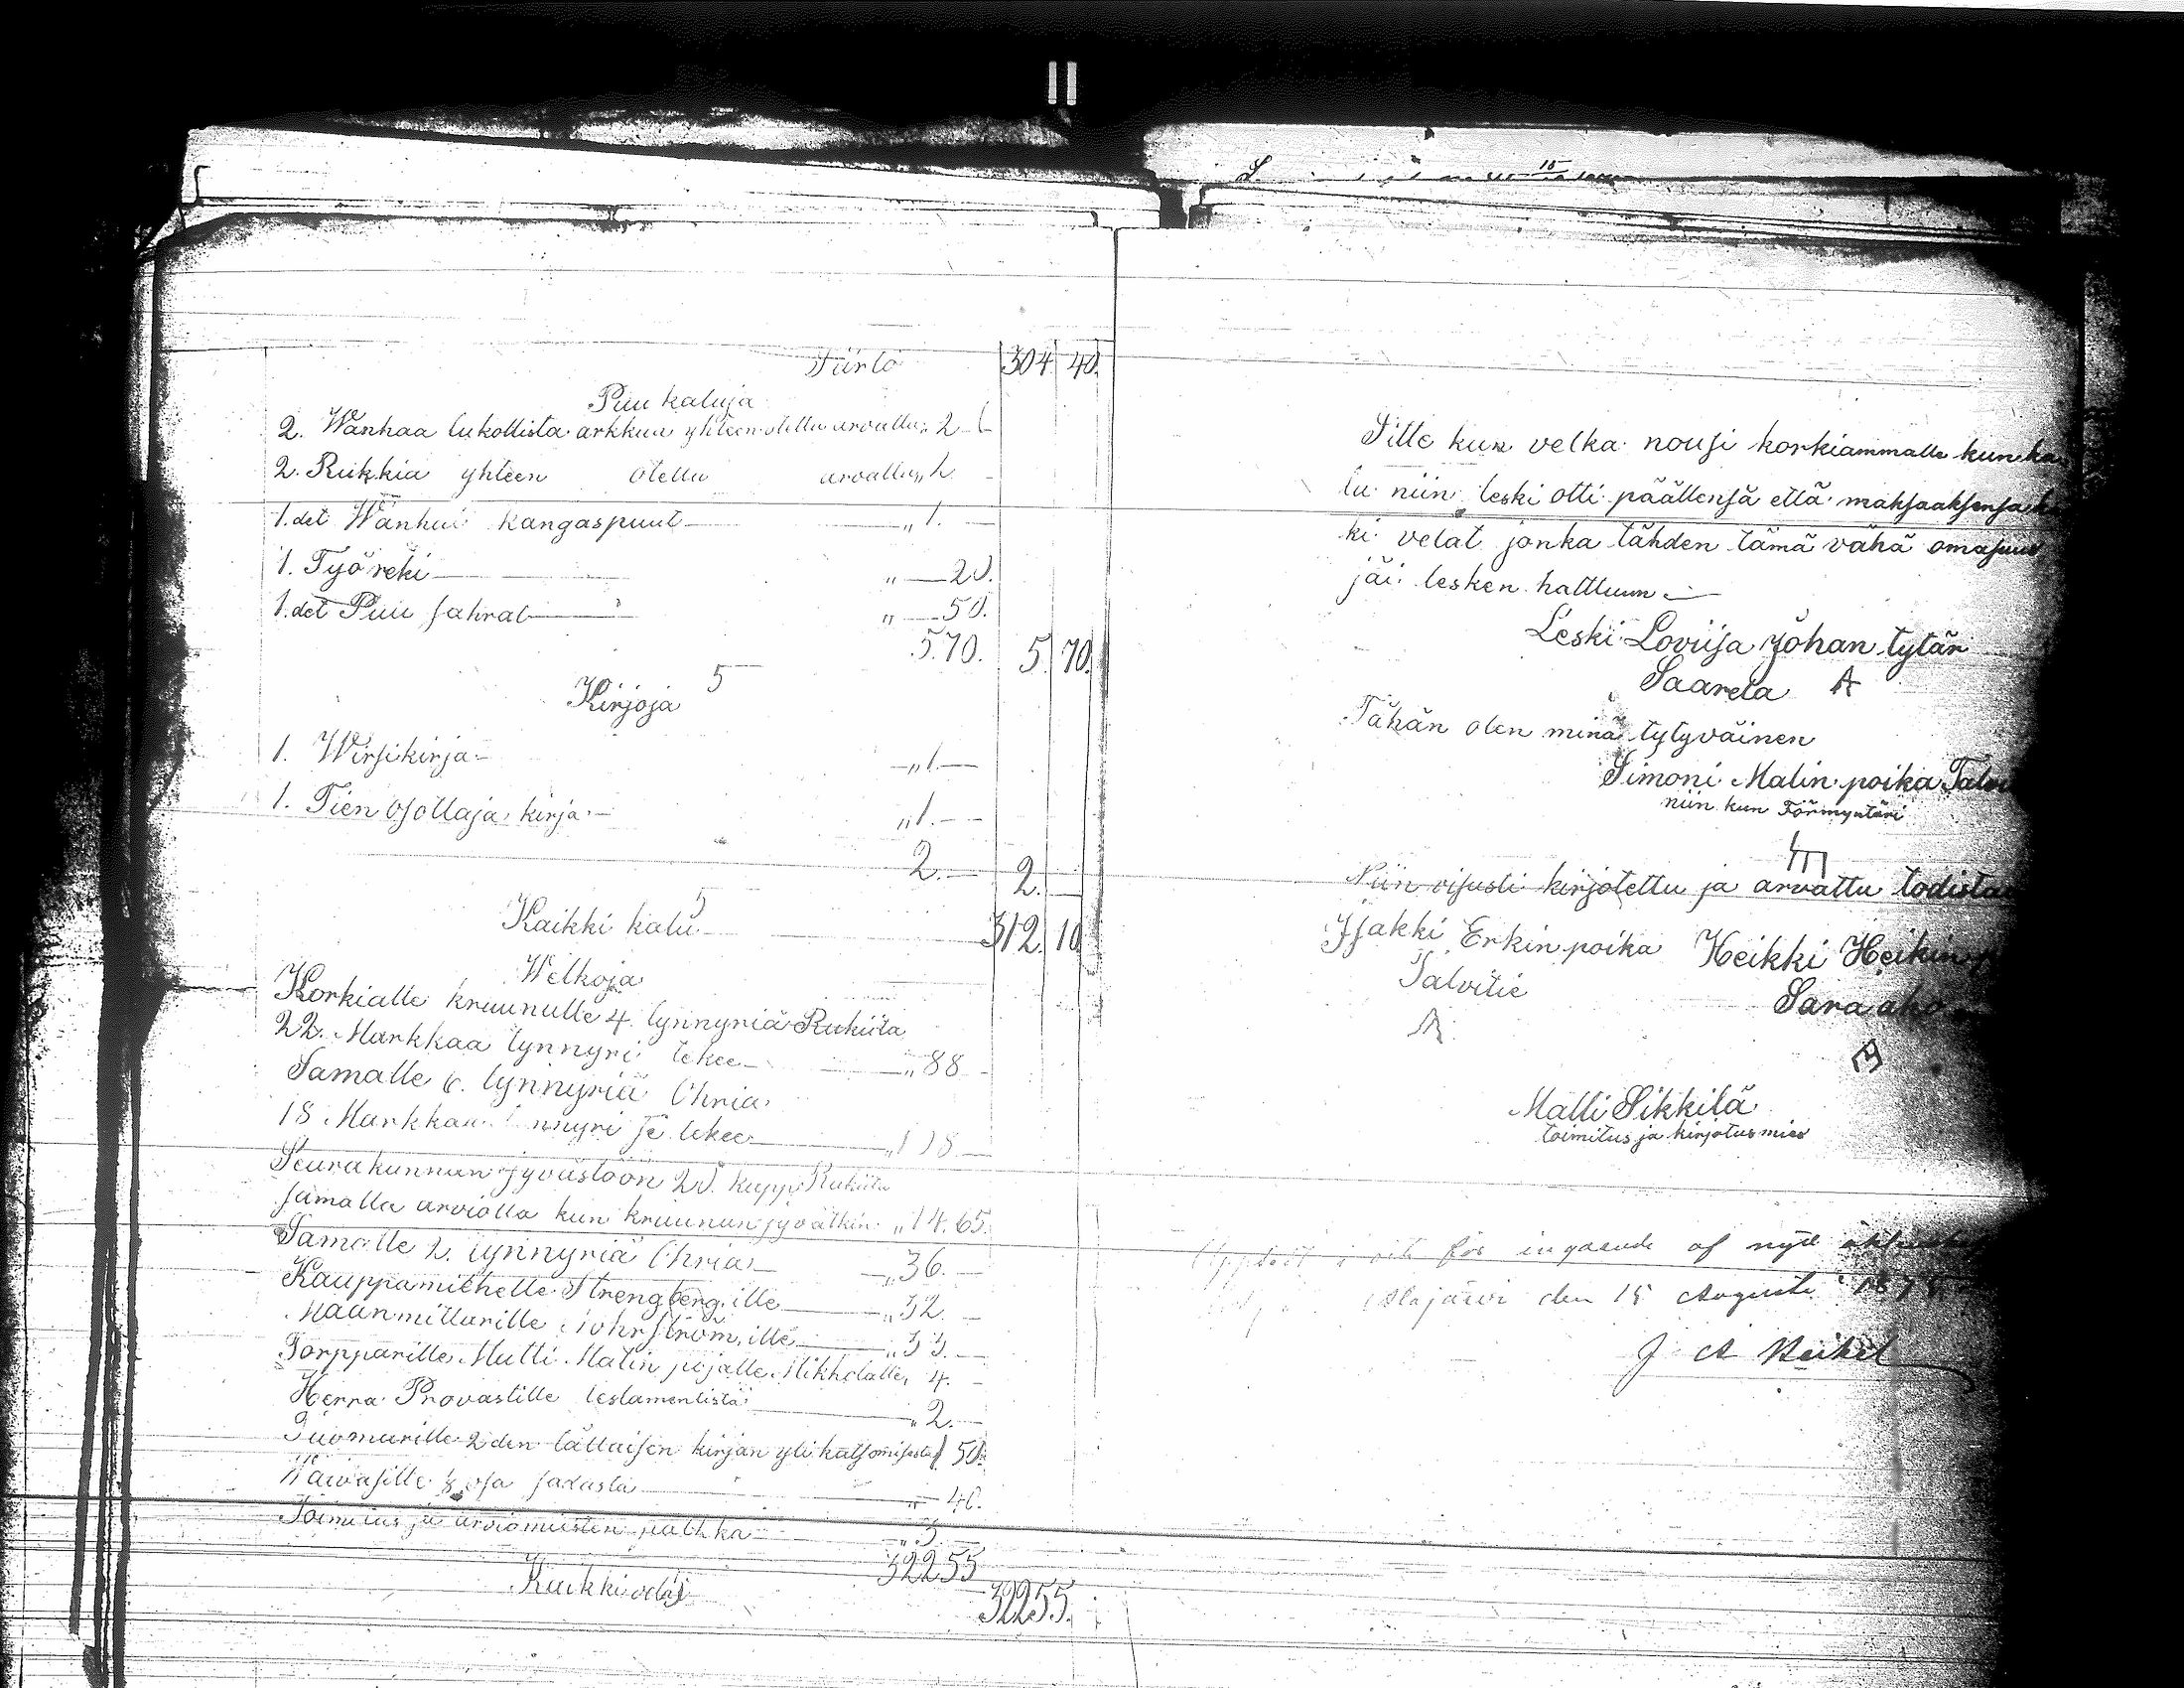 Siirto 304 40.
Puu kaluja
2. Wanhaa lukollista arkkua yhteen otettu arvattu „ 2 —
2. Rukkia yhteen otettu arvattu „ 2 —
1. det Wanhat kangaspuut — „ 1. —
1. Työ reki — „ — 20.
1. det Puu sahrat — „ — 50.
5.70. 5. 70.
Kirjoja
1. Wirsikirja — „ 1. —
1. Tien osottaja kirja — „ 1. —
2. — 2. —
Kaikki kalu — 312. 10
Welkoja
Korkialle kruunulle 4. tynnyriä Rukiita
22. Markkaa tynnyri tekee — „ 88 —
Samalle 6. tynnyriä Ohria
18 Markkaa tekee — „ 108 —
Seurakunnan jyvästöön 20. kapp. Rukiita
samalla arviolla kun kruunun jyvätkin „ 14. 65.
Samalle 2. tynnyriä Ohria — „ 36. —
Kauppamiehelle Strengberg,ille — „ 32. —
Maanmittarille ille — „ 33. —
Torpparille Matti Matin pojalle 4. —
Herra Provastille testamentistä — „ 2. —
Tuomarille 2 den tällaisen kirjan yli katsomisesta 1 50.
Waivasille ⅛ osa sadasta — „ 40.
Toimitus ja arviomiesten palkka — „ 3 —
32255
Kaikki 32255.
Sitte kun velka nousi korkiammalle kun ka
lu niin leski otti päällensä että maksaaksensa
ki velat jonka tähden tämä vähä omasuus
jäi lesken halttuun —
Leski Loviisa Johan tytär
Saarela A
Tähän olen minä tytyväinen
Simoni Matin poika
niin kun Förmyntäri
Niin visusti kirjotettu ja arvattu todista
Isakki Erkin poika Heikki Heikin
Talvitie
Sara aho
Matti Sikkilä
toimitus ja kirjotus mies
för ingaende af nytt
Alajärvi den 15 Augusti 187
J A Heikel